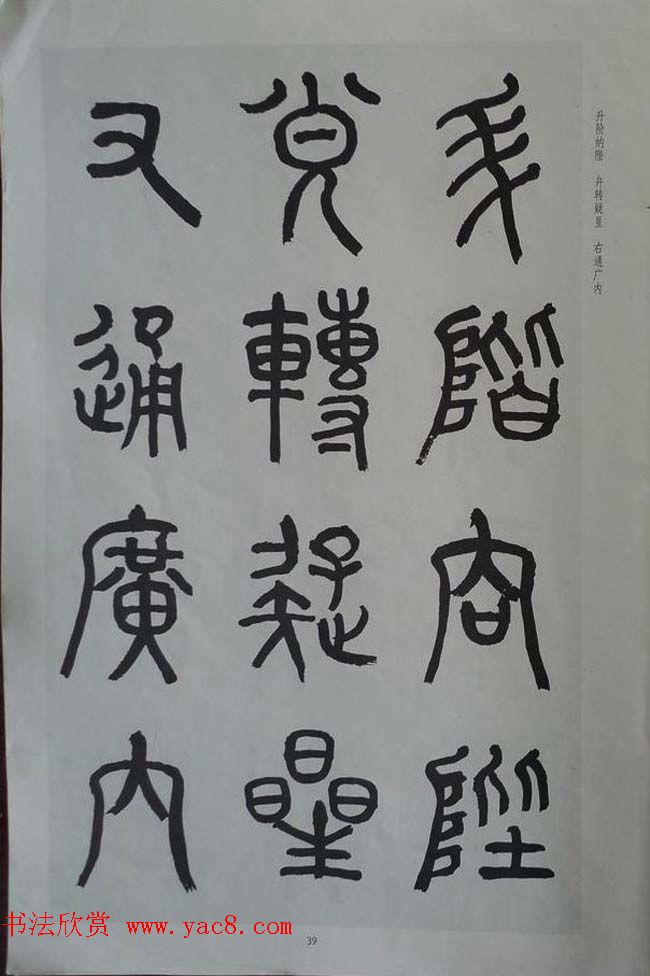 升阶纳陛 弁转疑星 右通广内
升階㕯陛
覍轉疑曐
又通廣內
书法欣赏 www.yac8.com
39